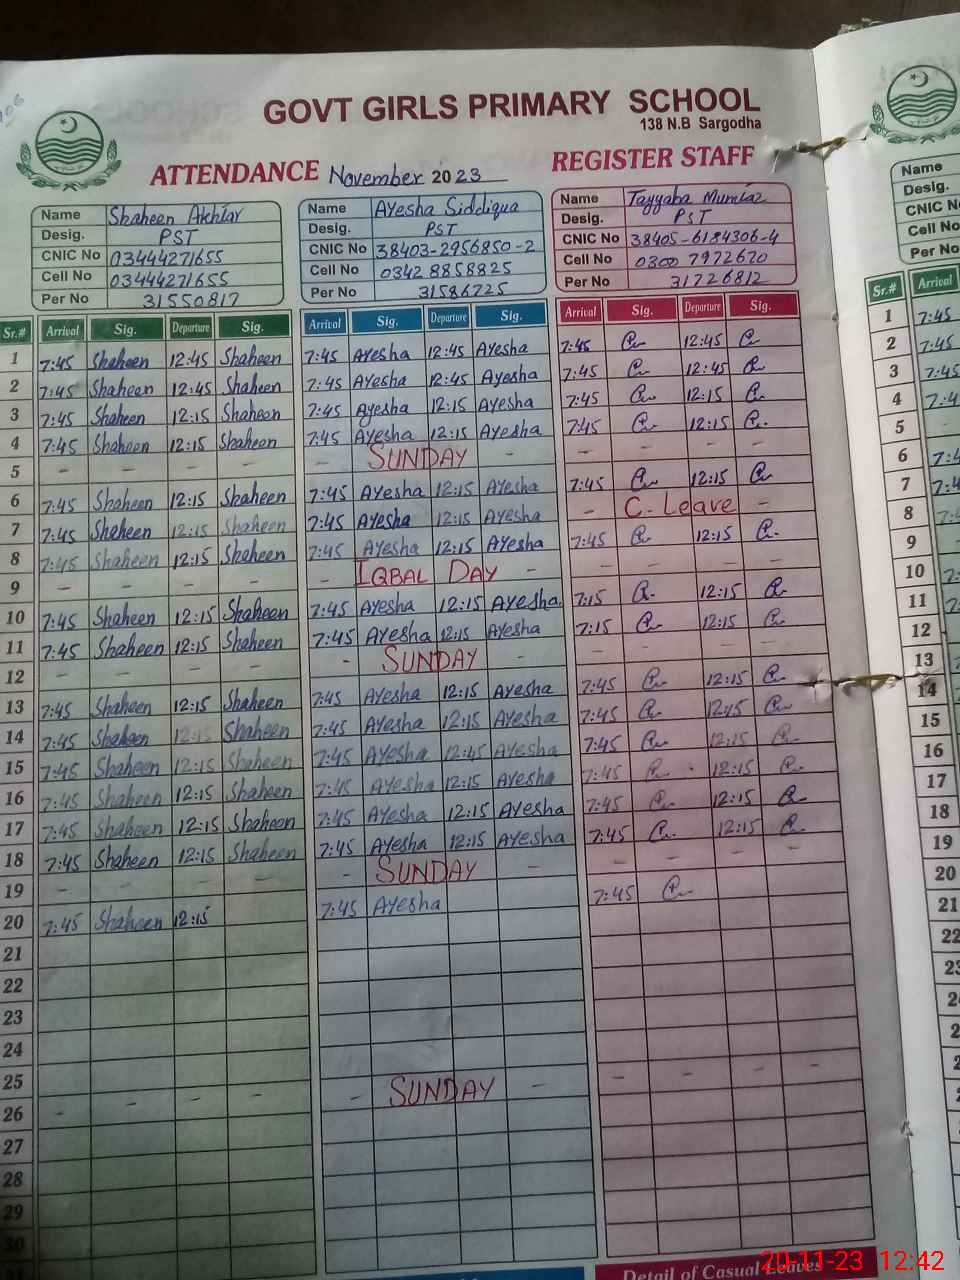 GOVT GIRLS PRIMARY SCHOOL
138 N.B Sargodha
ATTENDANCE November 2023 REGISTER STAFF
Name Shaheen Akhtar Name Ayesha Siddiqua Name Tayyaba Mumtaz Name
Desig. PST Desig. PST Desig. PST Desig.
CNIC No 03444271655 CNIC No 38403-2956850-2 CNIC No 38405-6184306-4 CNIC No
Cell No 03444271655 Cell No 0342 8858825 Cell No 0300 7972670 Cell No
Per No 31550817 Per No 31586725 Per No 31726812 Per No
Sr.# Arrival Sig. Departure Sig. Arrival Sig. Departure Sig. Arrival Sig. Departure Sig. Sr.# Arrival
1 7:45 Shaheen 12:45 Shaheen 7:45 Ayesha 12:45 Ayesha 7:45 12:45 1 7:45
2 7:45 Shaheen 12:45 Shaheen 7:45 Ayesha 12:45 Ayesha 7:45 12:45 2 7:45
3 7:45 Shaheen 12:15 Shaheen 7:45 Ayesha 12:15 Ayesha 7:45 12:15 3 7:45
4 7:45 Shaheen 12:15 Shaheen 7:45 Ayesha 12:15 Ayesha 7:45 12:15 4 7:4
5 - - - - - SUNDAY - - - - - 5 -
6 7:45 Shaheen 12:15 Shaheen 7:45 Ayesha 12:15 Ayesha 7:45 12:15 6 7:4
7 7:45 Shaheen 12:15 Shaheen 7:45 Ayesha 12:15 Ayesha - C. Leave - 7 7:4
8 7:45 Shaheen 12:15 Shaheen 7:45 Ayesha 12:15 Ayesha 7:45 12:15 8 7:
9 - - - - - IQBAL DAY - - - - - 9
10 7:45 Shaheen 12:15 Shaheen 7:45 Ayesha 12:15 Ayesha 7:15 12:15 10
11 7:45 Shaheen 12:15 Shaheen 7:45 Ayesha 12:15 Ayesha 7:15 12:15 11
12 - - - - - SUNDAY - - - - - 12
13 7:45 Shaheen 12:15 Shaheen 7:45 Ayesha 12:15 Ayesha 7:45 12:15 13
14 7:45 Shaheen 12:15 Shaheen 7:45 Ayesha 12:15 Ayesha 7:45 12:15 14
15 7:45 Shaheen 12:15 Shaheen 7:45 Ayesha 12:45 Ayesha 7:45 12:15 15
16 7:45 Shaheen 12:15 Shaheen 7:45 Ayesha 12:15 Ayesha 7:45 12:15 16
17 7:45 Shaheen 12:15 Shaheen 7:45 Ayesha 12:15 Ayesha 7:45 12:15 17
18 7:45 Shaheen 12:15 Shaheen 7:45 Ayesha 12:15 Ayesha 7:45 12:15 18
19 - - - - - SUNDAY - - - - - 19
20 7:45 Shaheen 12:15 7:45 Ayesha 7:45 20
21 21
22 22
23
24
25
26 - - - - - SUNDAY - - - - -
27
28
29
30
Detail of Casual Leaves
20-11-23 12:42